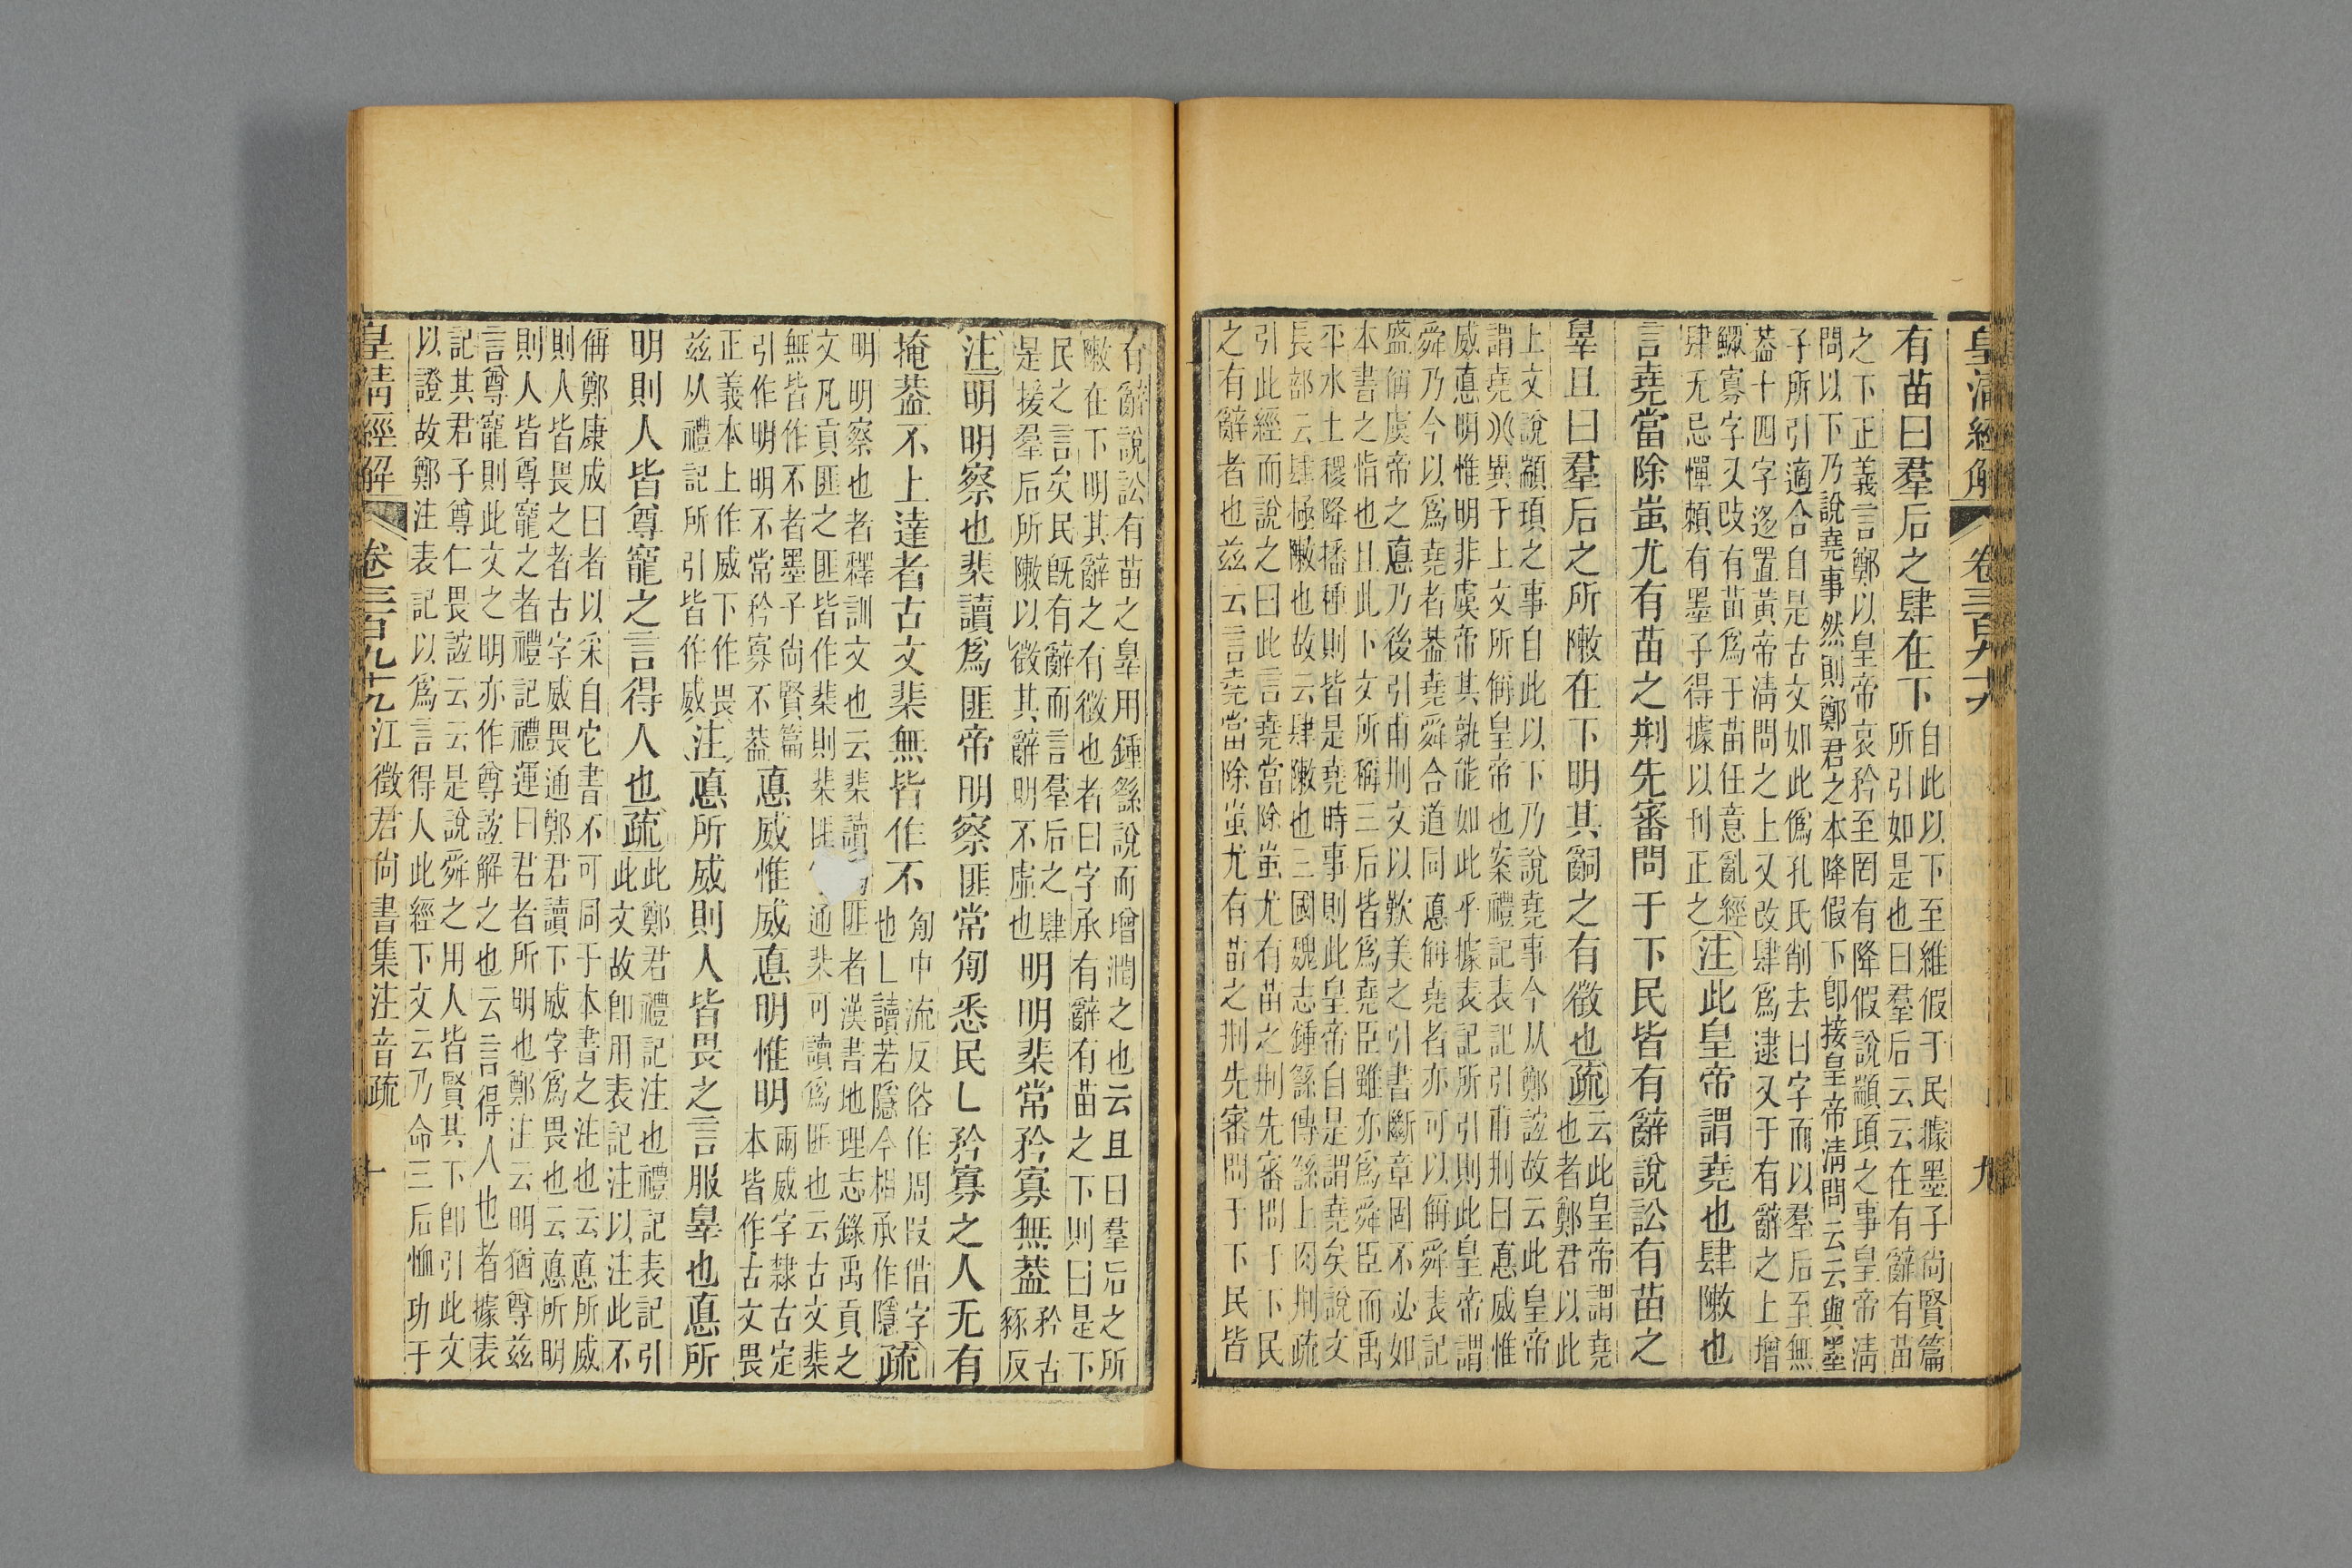 皇清經解 卷三百九十九 九
有苗曰羣后之肆在下
自此以下至維假于民據墨子尙賢篇
所引如是也曰羣后云云在有辭有苗
之下正義言鄭以皇帝哀矜至罔有降假說顓頊之事皇帝淸
問以下乃說堯事然則鄭君之本降假下卽接皇帝淸問云云與墨
子所引適合自是古文如此僞孔氏削去曰字而以羣后至無
葢十四字迻置黃帝淸問之上又改肆爲逮又于有辭之上增
鰥寡字又改有苗爲于苗任意亂經
肆无忌憚賴有墨子得據以刊正之
注此皇帝謂堯也肆敶也
言堯當除蚩尤有苗之荆先審問于下民皆有辭說訟有苗之
辠且曰羣后之所敶在下明其嗣之有徵也疏
云此皇帝謂堯
也者鄭君以此
上文說顓頊之事自此以下乃說堯事今从鄭誼故云此皇帝
謂堯㕣異于上文所偁皇帝也案禮記表記引甫荆曰悳威惟
威悳明惟明非虞帝其孰能如此乎據表記所引則此皇帝謂
舜乃今以爲堯者葢堯舜合道同悳偁堯者亦可以偁舜表記
盛偁虞帝之悳乃後引甫荆文以歎美之引書斷章固不必如
本書之恉也且此下文所稱三后皆爲堯臣雖亦爲舜臣而禹
平水土稷降播種則皆是堯時事則此皇帝自是謂堯矣說文
長部云肆極敶也故云肆敶也三國魏志鍾繇傳繇上肉荆疏
引此經而說之曰此言堯當除蚩尤有苗之荆先審問于下民
之有辭者也兹云言堯當除蚩尤有苗之荆先審問于下民皆
有辭說訟有苗之辠用鍾繇說而增潤之也云且曰羣后之所
敶在下明其辭之有徵也者曰字承有辭有苗之下則曰是下
民之言矣民旣有辭而言羣后之肆
是援羣后所敶以徵其辭明不虛也
明明棐常矜寡無葢
矜古
豩反
注明明察也棐讀爲匪帝明察匪常匔悉民乚矜寡之人无有
掩葢不上達者古文棐無皆作不
匔巾流反俗作周叚借字
也乚讀若隱今相承作隱
疏
明明察也者釋訓文也云棐讀匪者漢書地理志錄禹貢之
文凡貢匪之匪皆作棐則棐匪通棐可讀爲匪也云古文棐
無皆作不者墨子尙賢篇
引作明明不常矜寡不葢
悳威惟威悳明惟明
兩威字隸古定
本皆作古文畏
正義本上作威下作畏
兹从禮記所引皆作威
注悳所威則人皆畏之言服辠也悳所
明則人皆尊寵之言得人也疏
此鄭君禮記注也禮記表記引
此文故卽用表記注以注此不
偁鄭康成曰者以采自它書不可同于本書之注也云悳所威
則人皆畏之者古字威畏通鄭君讀下威字爲畏也云悳所明
則人皆尊寵之者禮記禮運曰君者所明也鄭注云明猶尊兹
言尊寵則此文之明亦作尊誼解之也云言得人也者據表
記其君子尊仁畏誼云云是說舜之用人皆賢其下卽引此文
以證故鄭注表記以爲言得人此經下文云乃命三后恤功于
皇清經解 卷三百九十九 江徵君尙書集注音疏 十